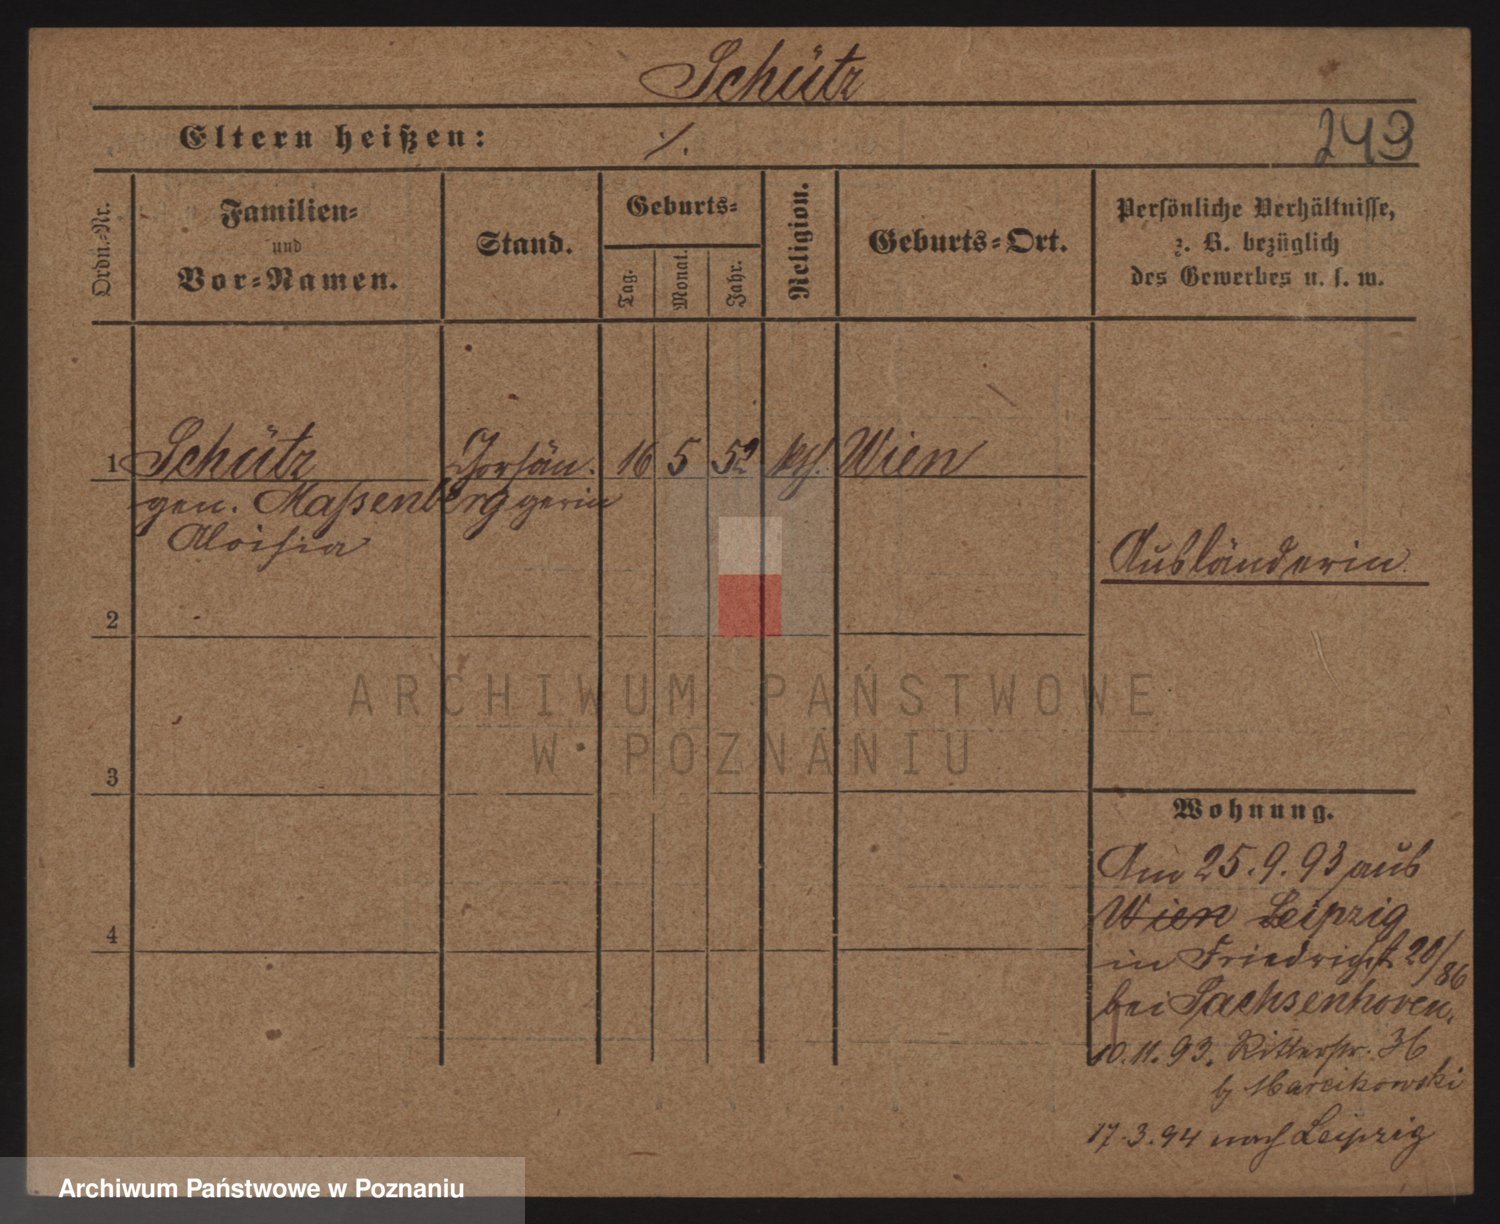 Schütz
Eltern heißen: ·/.
243
Ordn.-Nr.
Familien-
und
Vor-Namen.
Stand.
Geburts-
Tag.
Monat.
Jahr.
Religion.
Geburts-Ort.
Persönliche Verhältnisse,
z. B. bezüglich
des Gewerbes u. s. w.
1 Schütz Chorsän- 16 5 52 kth. Wien
gen. Maßenberg gerin
Aloisia
Ausländerin.
2
3
4
Wohnung.
Am 25.9.93 aus
Wien Leipzig
in Friedrichst 20/86
bei Sachsenhoven.
10.11.93. Ritterstr. 36
b/ Marcikowski
17.3.94 nach Leipzig
ARCHIWUM PAŃSTWOWE
W POZNANIU
Archiwum Państwowe w Poznaniu